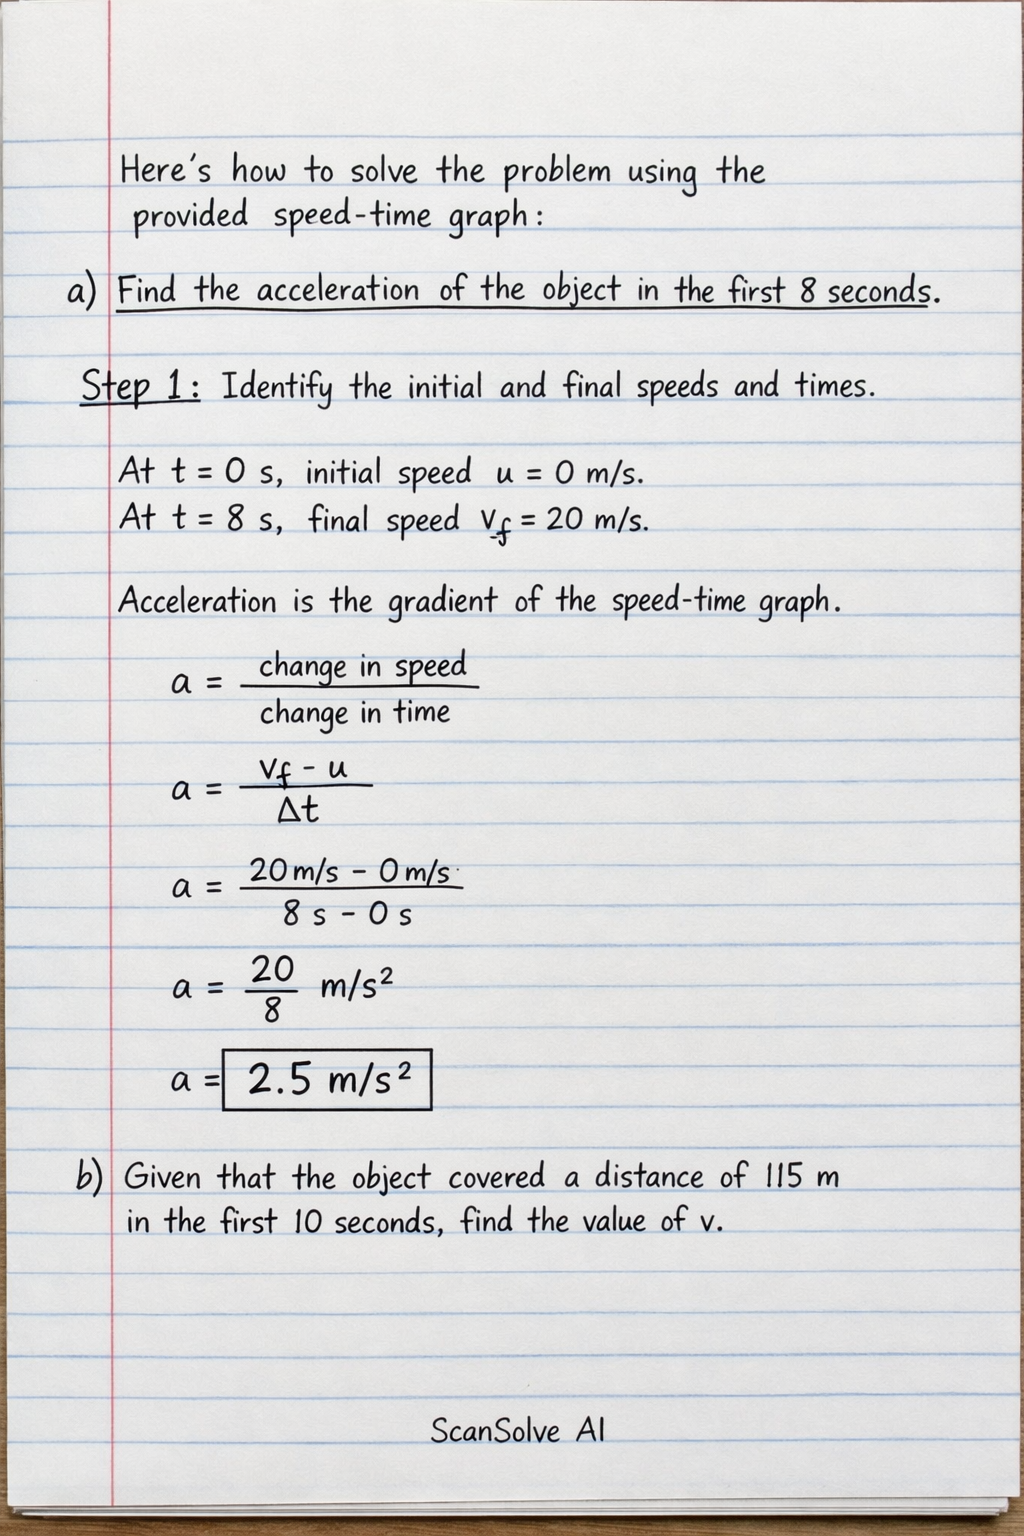 Here's how to solve the problem using the
provided speed-time graph:
a) Find the acceleration of the object in the first 8 seconds.
Step 1: Identify the initial and final speeds and times.
At t = 0 s, initial speed u = 0 m/s.
At t = 8 s, final speed v_f = 20 m/s.
Acceleration is the gradient of the speed-time graph.
a = change in speed / change in time
a = v_f - u / Δt
a = 20 m/s - 0 m/s / 8 s - 0 s
a = 20/8 m/s²
a = 2.5 m/s²
b) Given that the object covered a distance of 115 m
in the first 10 seconds, find the value of v.
ScanSolve AI